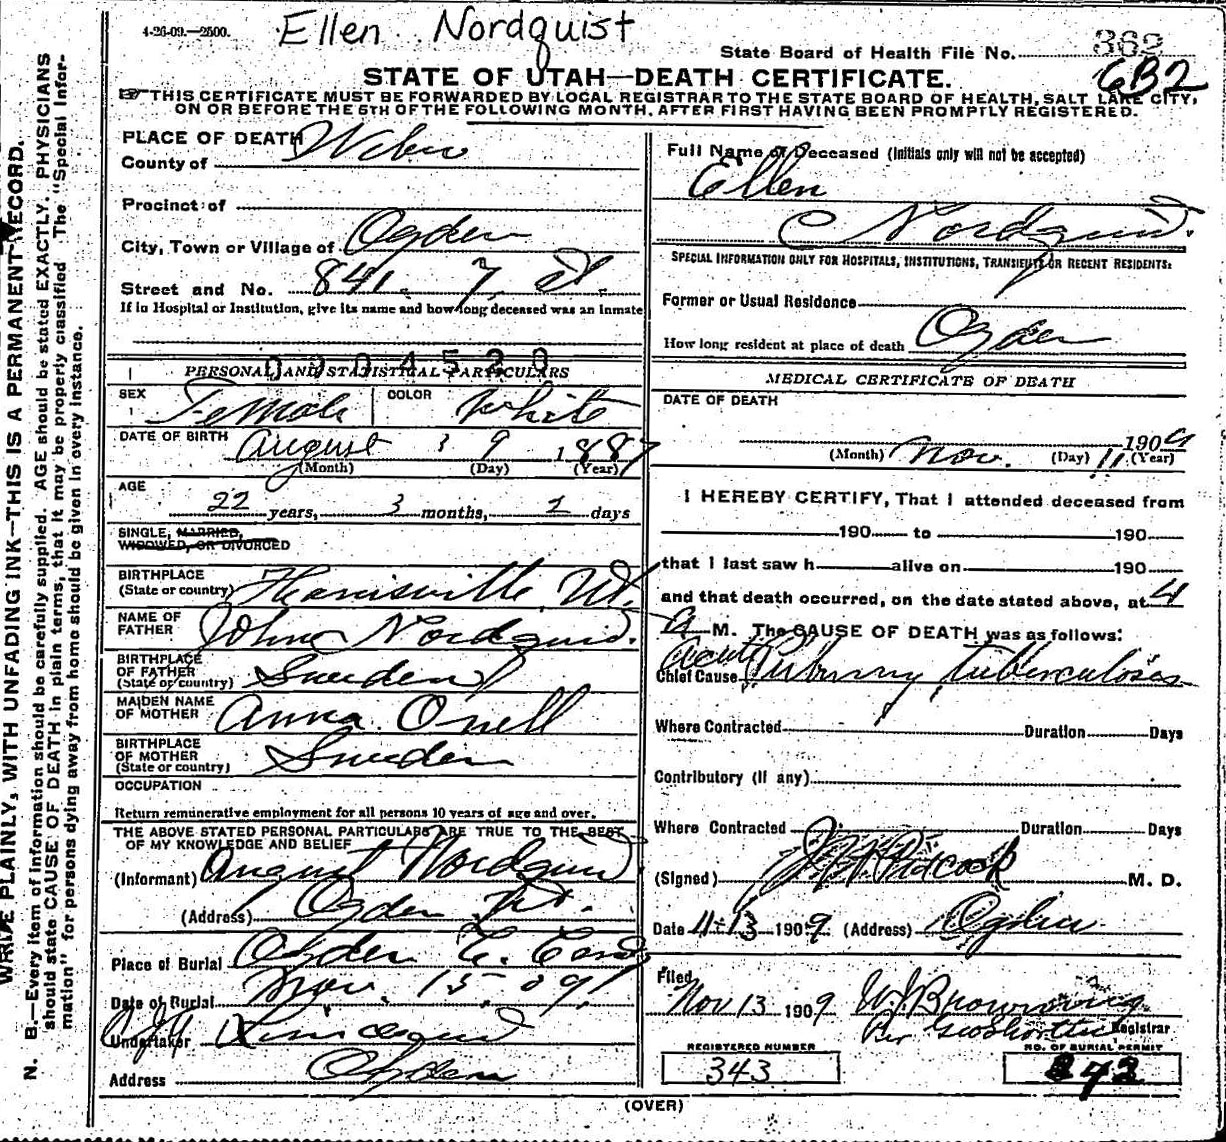 4-26-09.—2500.
Ellen Nordquist
State Board of Health File No. 362
6B2
STATE OF UTAH—DEATH CERTIFICATE.
THIS CERTIFICATE MUST BE FORWARDED BY LOCAL REGISTRAR TO THE STATE BOARD OF HEALTH, SALT LAKE CITY,
ON OR BEFORE THE 5TH OF THE FOLLOWING MONTH, AFTER FIRST HAVING BEEN PROMPTLY REGISTERED.
WRITE PLAINLY, WITH UNFADING INK—THIS IS A PERMANENT RECORD.
N. B.—Every item of information should be carefully supplied. AGE should be stated EXACTLY. PHYSICIANS
should state CAUSE OF DEATH in plain terms, that it may be properly classified. The "Special Infor-
mation" for persons dying away from home should be given in every instance.
PLACE OF DEATH
County of Weber
Precinct of
City, Town or Village of Ogden
Street and No. 841. 7. St.
If in Hospital or Institution, give its name and how long deceased was an inmate
PERSONAL AND STATISTICAL PARTICULARS
SEX Female COLOR White
DATE OF BIRTH August 9 1887
(Month) (Day) (Year)
AGE
22 years, 3 months, 2 days
SINGLE, MARRIED,
WIDOWED, OR DIVORCED
BIRTHPLACE
(State or country) Harrisville, Ut.
NAME OF
FATHER John Nordquist.
BIRTHPLACE
OF FATHER
(State or country) Sweden
MAIDEN NAME
OF MOTHER Anna Onell
BIRTHPLACE
OF MOTHER
(State or country) Sweden
OCCUPATION
Return remunerative employment for all persons 10 years of age and over.
THE ABOVE STATED PERSONAL PARTICULARS ARE TRUE TO THE BEST
OF MY KNOWLEDGE AND BELIEF
(Informant) August Nordquist
(Address) Ogden Ut.
Place of Burial Ogden C. Cem
Date of Burial Nov. 15. 09
Undertaker Lindquist
Address Ogden
Full Name of Deceased (Initials only will not be accepted)
Ellen
Nordquist.
SPECIAL INFORMATION ONLY FOR HOSPITALS, INSTITUTIONS, TRANSIENTS OR RECENT RESIDENTS:
Former or Usual Residence
How long resident at place of death Ogden
MEDICAL CERTIFICATE OF DEATH
DATE OF DEATH
1909
(Month) Nov. (Day) 11 (Year)
I HEREBY CERTIFY, That I attended deceased from
190 to 190
that I last saw h alive on 190
and that death occurred, on the date stated above, at 4
A M. The CAUSE OF DEATH was as follows:
Chief Cause Acute Pulmonary tuberculosis
Where Contracted Duration Days
Contributory (if any)
Where Contracted Duration Days
(Signed) Pidcock M. D.
Date 11-13 1909 (Address) Ogden
Filed
Nov 13 1909 W. J. Browning
Per Geo Shorten Registrar
REGISTERED NUMBER
343
NO. OF BURIAL PERMIT
242
(OVER)